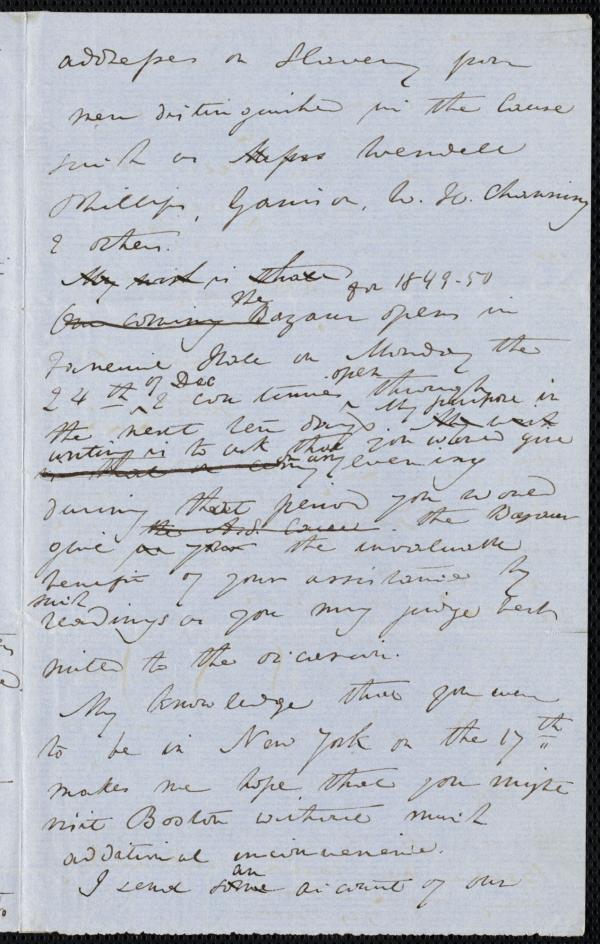 addresses on Slavery from
men distinguished in the Cause
such as Messrs Wendell
Phillips, Garrison, W. H. Channing
& others.
My wish is that for 1849-50
Our coming The Bazaar opens in
Faneuil Hall on Monday the
24th of Dec & continues open through
the next ten days. My purpose in
writing is to ask that you would give
is that on any evening
during that period you would
the A.S. Cause. the Bazaar
give us your the invaluable
benefit of your assistance by
such
readings as you may judge best
suited to the occasion.
My knowledge that you were
to be in New York on the 17th
makes me hope that you might
visit Boston without much
additional inconvenience.
I send some an account of our